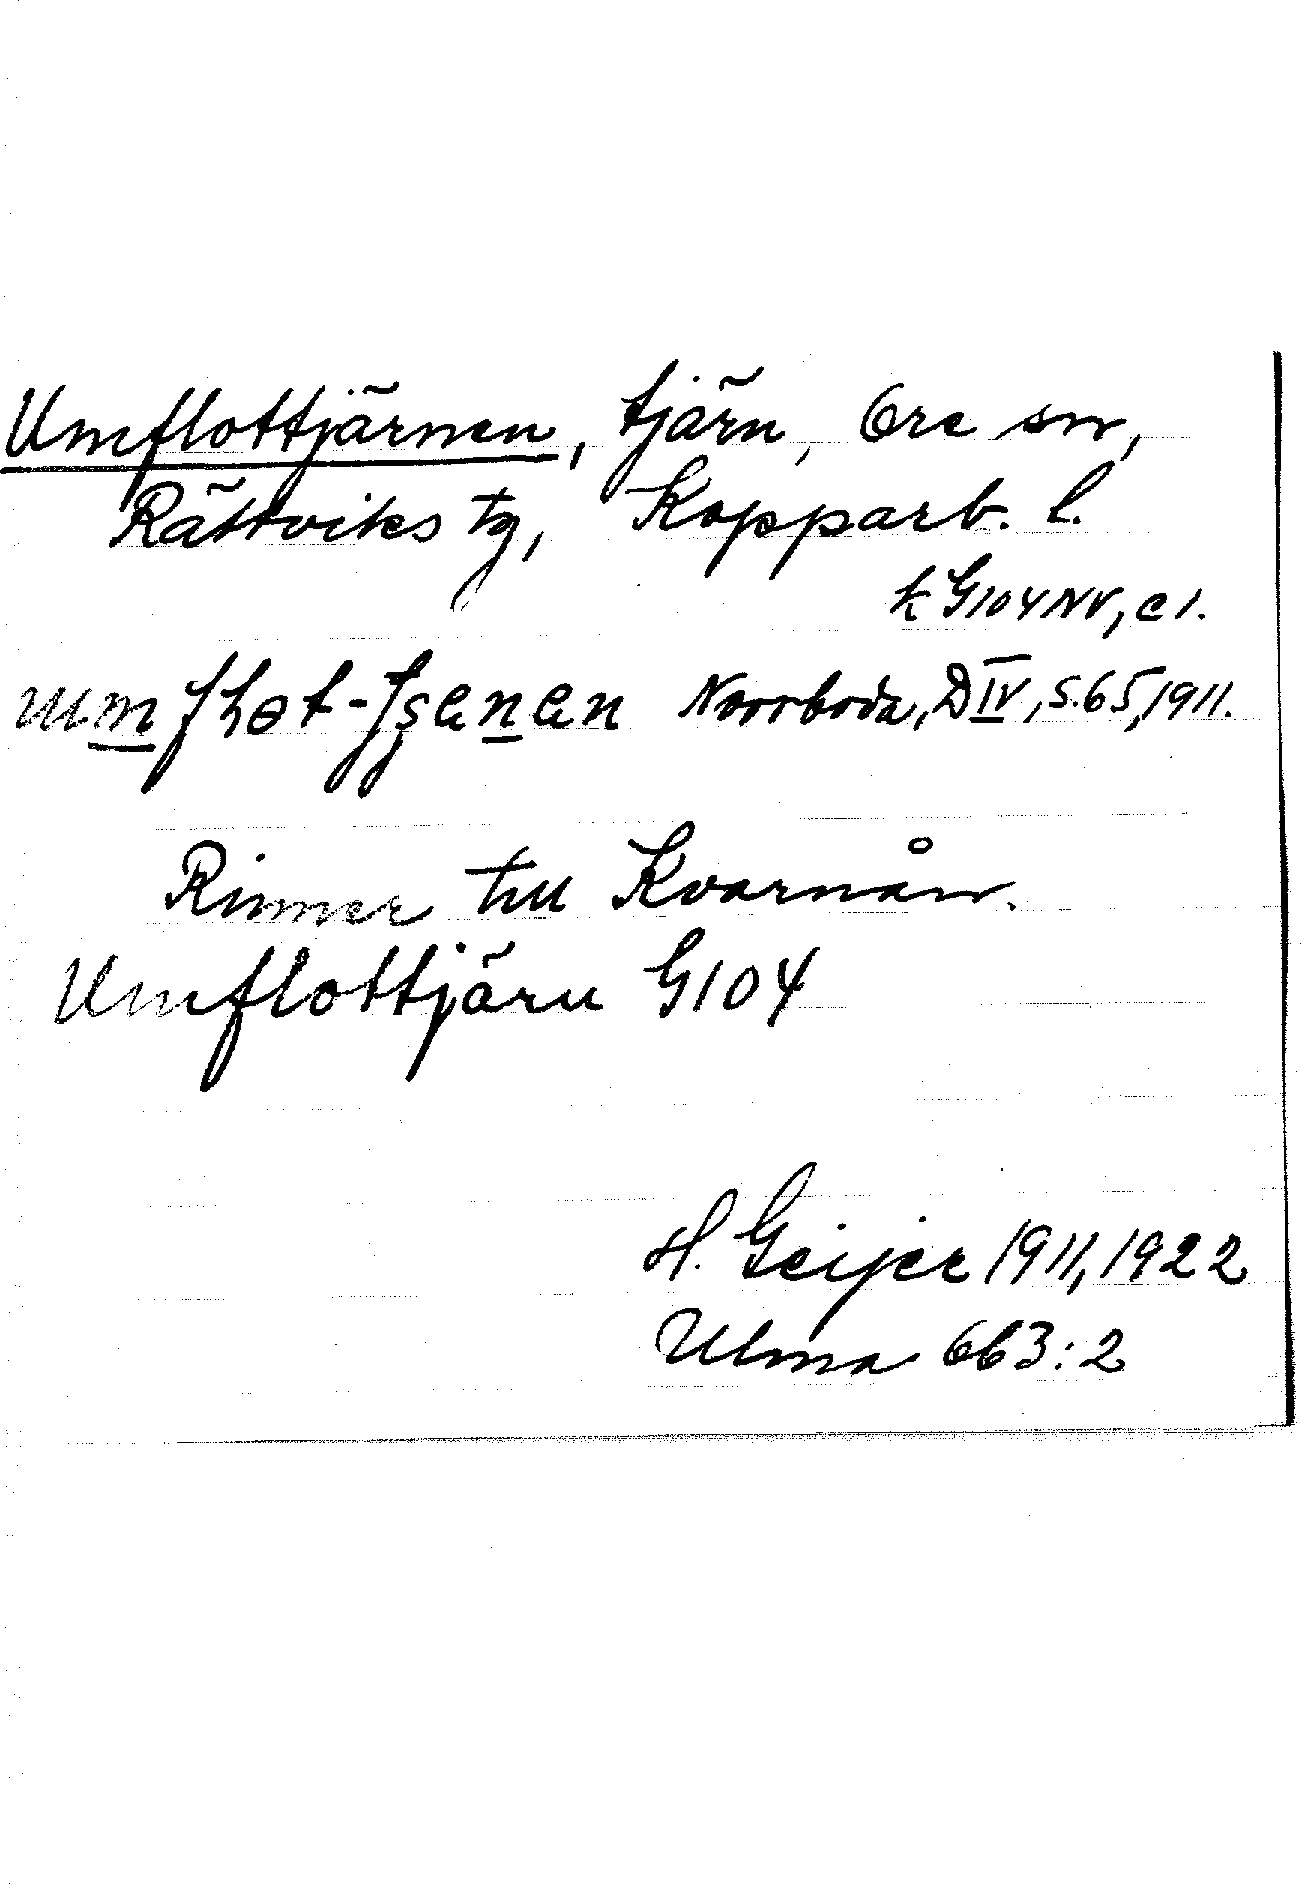 Umflottjärnen, tjärn, Ore sn,
Rättviks tg, Kopparb. l.
k G104NV, c1.
Norrboda, D IV, s. 65, 1911.
Rinner till Kvarnån.
Umflottjärn G104
H. Geijer 1911, 1922
Ulma 663:2